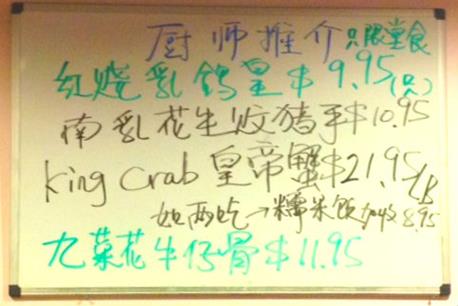 厨师推介 只限堂食
红烧乳鸽皇 $9.95(只)
南乳花生炆猪手 $10.95
King Crab 皇帝蟹 $21.95/LB
如两吃→糯米饭加收8.95
九菜花牛仔骨 $11.95